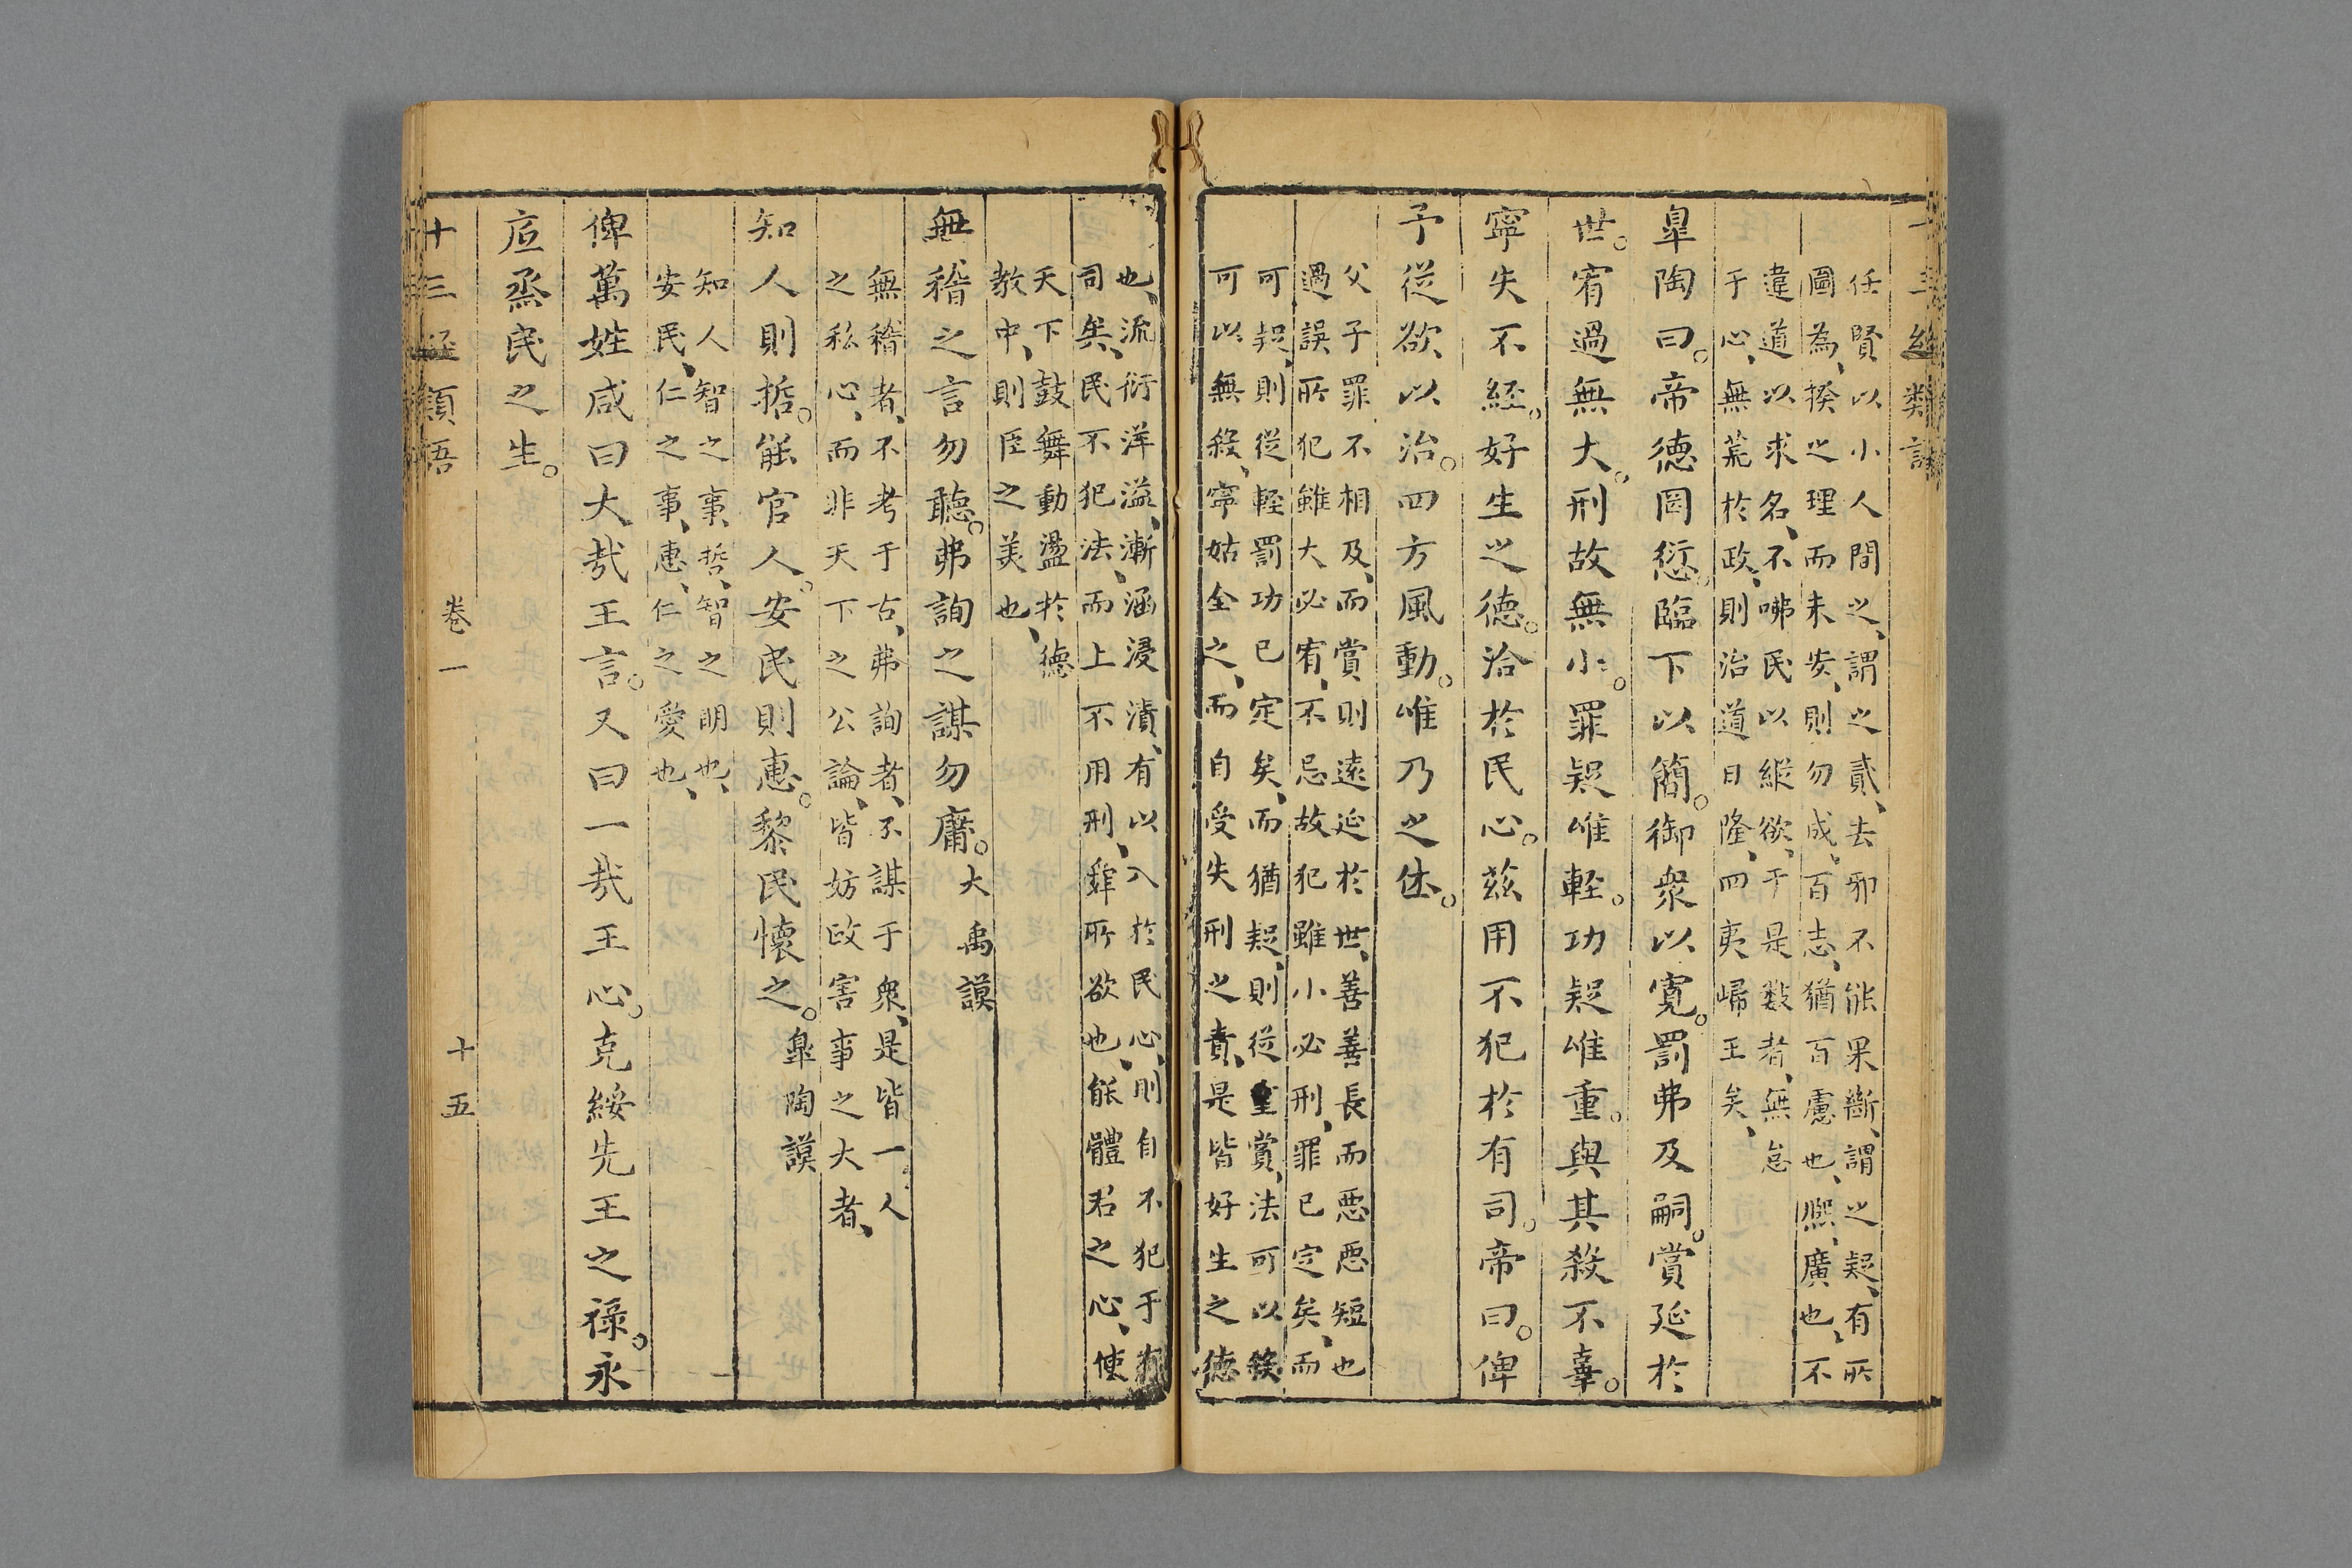 任賢以小人間之、謂之貳、去邪不能果斷、謂之疑、有所
圖為、揆之理而未安、則勿成、百志、猶百慮也、熙、廣也、不
違道以求名、不咈民以縱欲、于是數者、無怠
于心、無荒於政、則治道日隆、四夷歸王矣、
皐陶曰。帝德罔愆。臨下以簡。御衆以寬。罰弗及嗣。賞延於
世。宥過無大。刑故無小。罪疑唯輕。功疑唯重。與其殺不辜。
寧失不經。好生之德。洽於民心。茲用不犯於有司。帝曰。俾
予從欲以治。四方風動。唯乃之休。
父子罪不相及、而賞則遠延於世、善善長而惡惡短也
過誤所犯雖大必宥、不忌故犯雖小必刑、罪已定矣、而
可疑、則從輕罰功已定矣、而猶疑、則從重賞、法可以殺
可以無殺、寧姑全之、而自受失刑之責、是皆好生之德
也、流衍洋溢、漸涵浸漬、有以入於民心、則自不犯于有
司矣、民不犯法、而上不用刑、舜所欲也、能體君之心、使
天下鼓舞動盪於德
教中、則臣之美也、
無稽之言勿聽。弗詢之謀勿庸。大禹謨
無稽者、不考于古、弗詢者、不謀于衆、是皆一人
之私心、而非天下之公論、皆妨政害事之大者、
知人則哲。能官人。安民則惠。黎民懷之。皐陶謨
知人智之事、哲、智之明也、
安民、仁之事、惠、仁之愛也、
俾萬姓咸曰大哉王言。又曰一哉王心。克綏先王之祿。永
底烝民之生。
十三經類語
卷一
十五